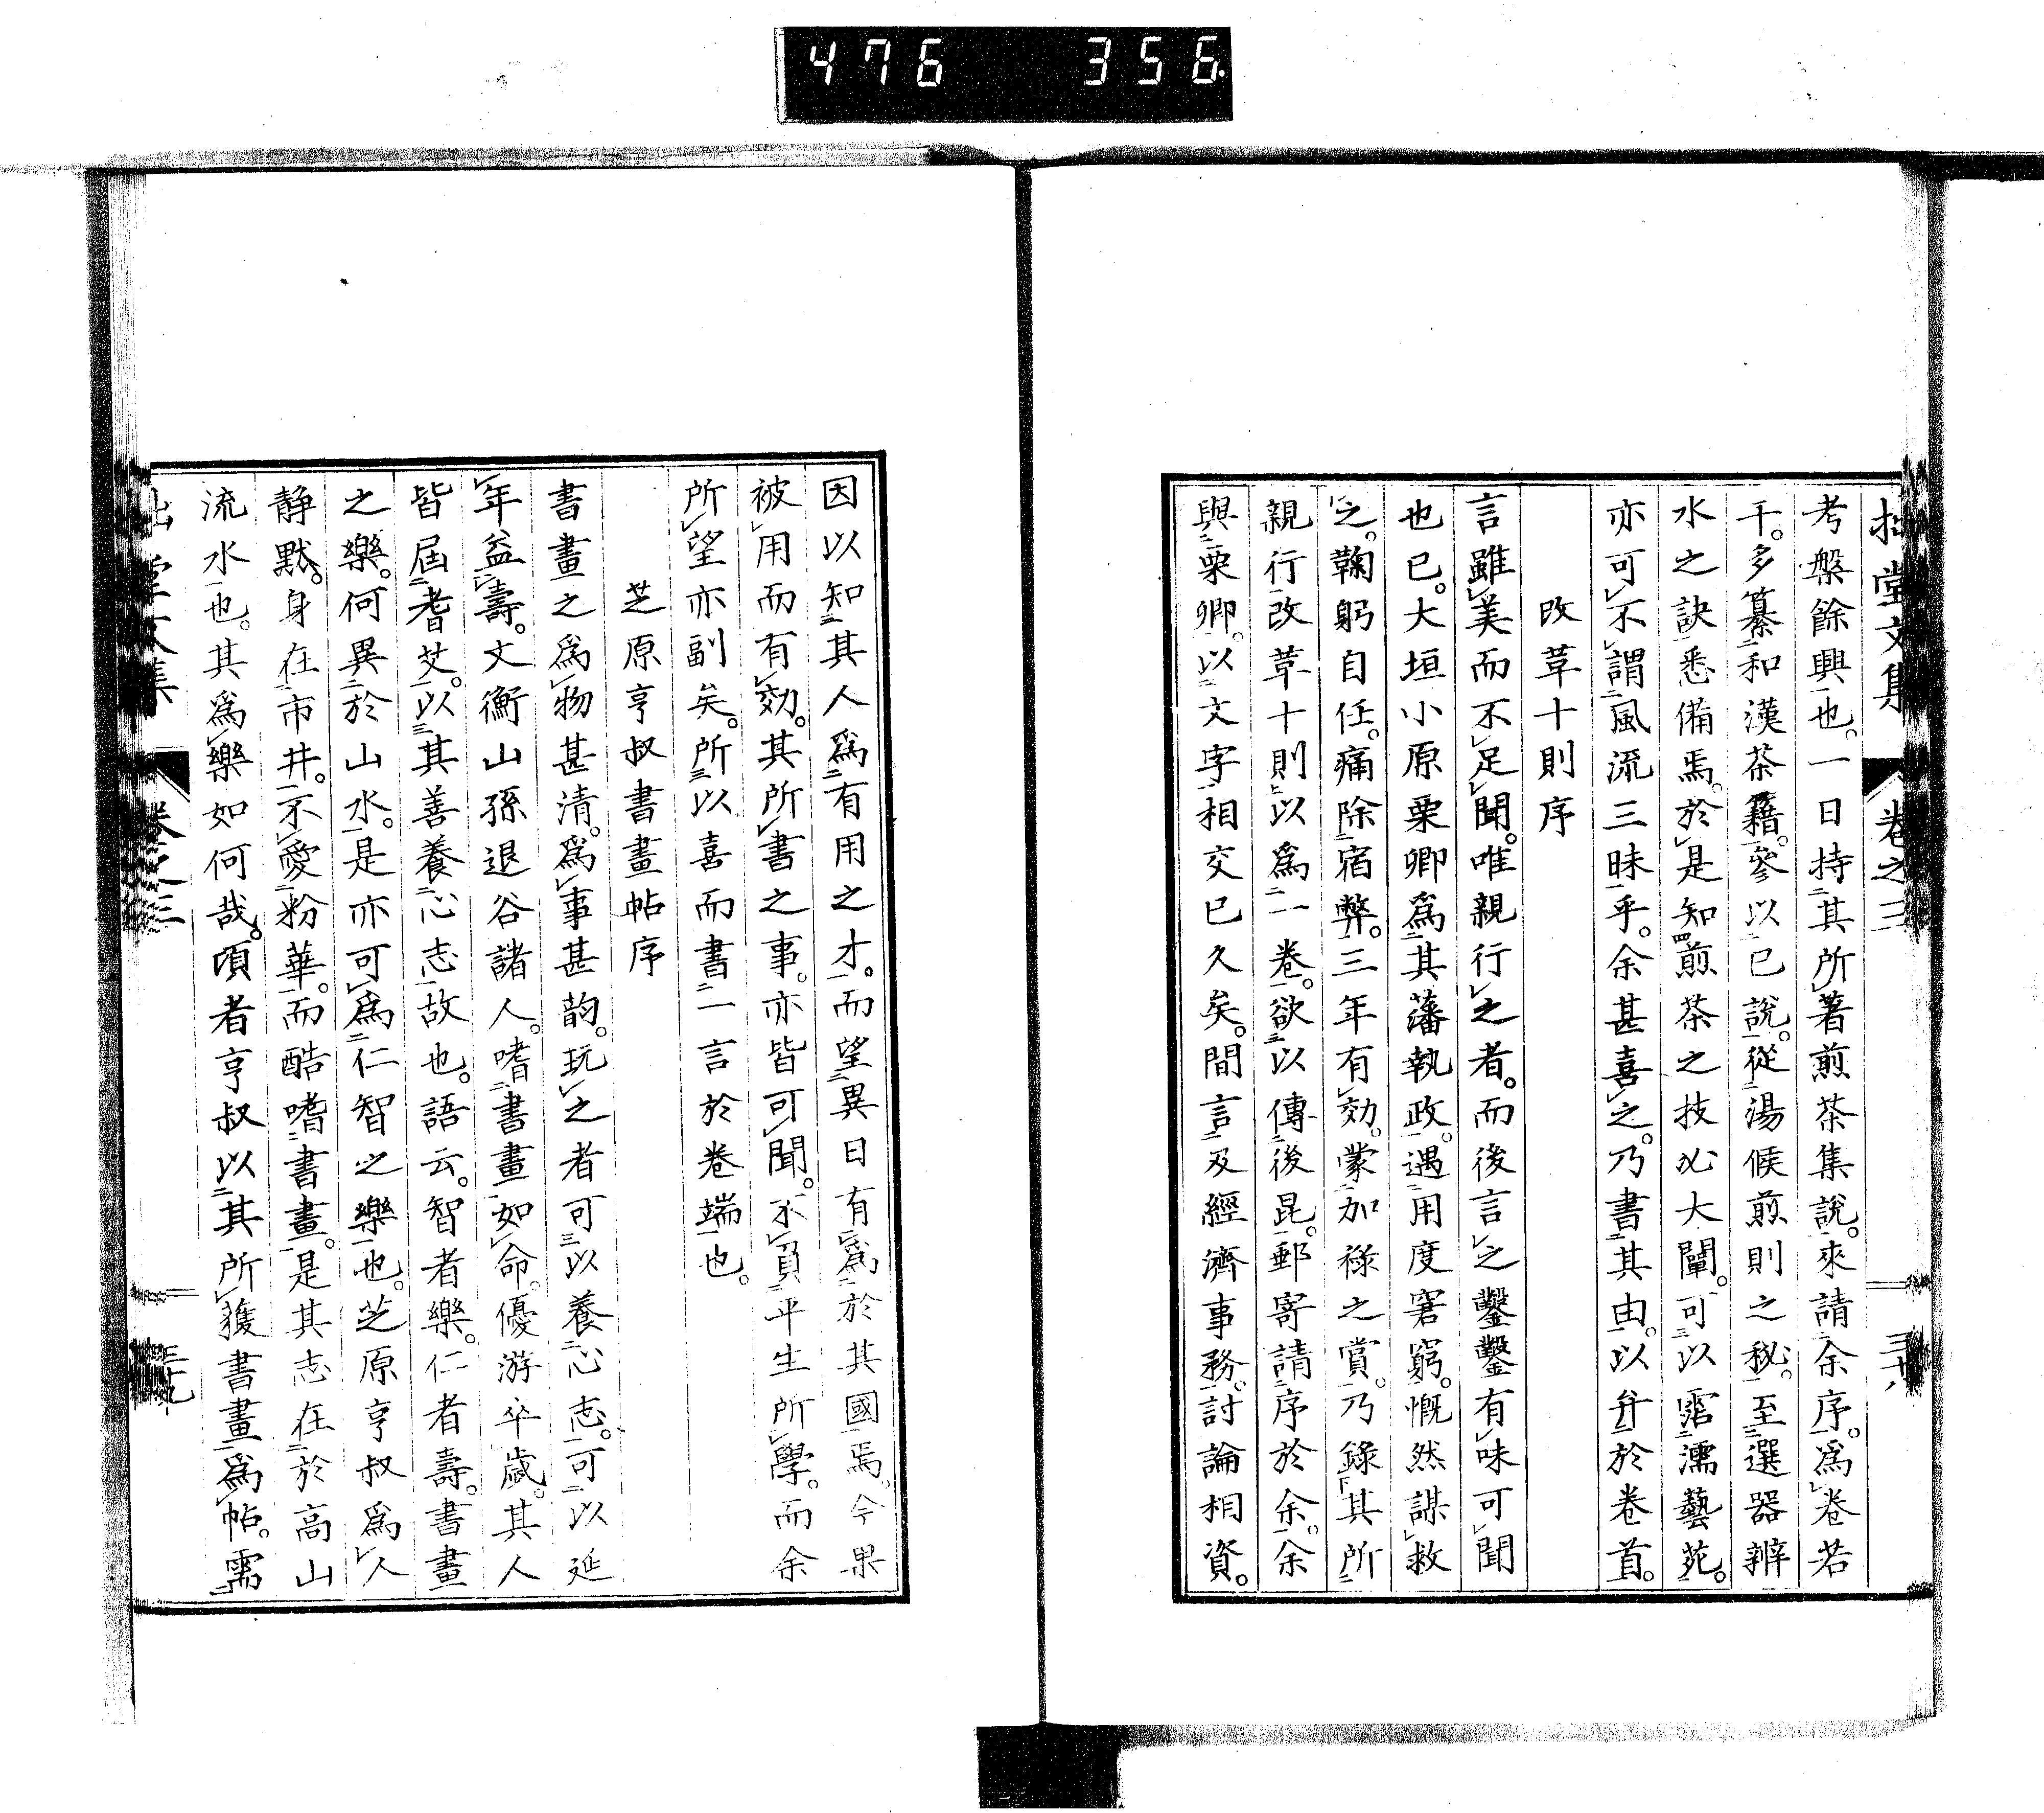 476 356
拙堂文集 卷之三 三十八
考槃餘興也。一日持其所著煎茶集說。來請余序。爲卷若
干。多纂和漢茶籍。參以己說。從湯候煎則之秘。至選器辨
水之訣。悉備焉。於是知煎茶之技必大闡。可以霑濡藝苑。
亦可不謂風流三昧乎。余甚喜之。乃書其由。以弁於卷首。
改草十則序
言雖美而不足聞。唯親行之者。而後言之鑿鑿有味可聞
也已。大垣小原栗卿爲其藩執政。遇用度窘窮。慨然謀救
之。鞠躬自任。痛除宿弊。三年有効。蒙加祿之賞。乃錄其所
親行改草十則以爲一卷。欲以傳後昆。郵寄請序於余。余
與栗卿。以文字相交已久矣。間言及經濟事務。討論相資。
因以知其人爲有用之才。而望異日有爲於其國焉。今果
被用而有効。其所書之事。亦皆可聞。不負平生所學。而余
所望亦副矣。所以喜而書一言於卷端也。
芝原亨叔書畫帖序
書畫之爲物甚清。爲事甚韵。玩之者可以養心志。可以延
年益壽。文衡山孫退谷諸人。嗜書畫如命。優游卒歲。其人
皆屆耆艾。以其善養心志故也。語云。智者樂。仁者壽。書畫
之樂。何異於山水。是亦可爲仁智之樂也。芝原亨叔爲人
靜默。身在市井。不愛粉華。而酷嗜書畫。是其志在於高山
流水也。其爲樂如何哉。頃者亨叔以其所獲書畫爲帖。需
堂文集 卷之三 三十九